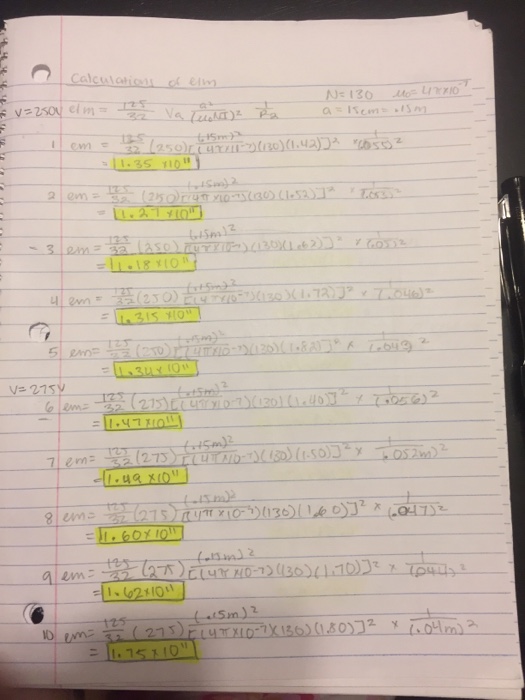 Calculations of e/m
N=130 μ₀=4πx10⁻⁷
V=250V e/m = 125/32 Va a²/[μ₀NI]² 1/R² a=15cm=.15m
1 em = 125/32 (250) (.15m)²/[(4πx10⁻⁷)(130)(1.42)]² x 1/(.055)²
= 1.35 x10¹¹
2 em = 125/32 (250) (.15m)²/[(4πx10⁻⁷)(130)(1.52)]² x
= 1.27 x10¹¹
3 em = 125/32 (250) (.15m)²/[(4πx10⁻⁷)(130)(1.62)]² x
= 1.18 x10¹¹
4 em = 125/32 (250) (.15m)²/[(4πx10⁻⁷)(130)(1.72)]² x 1/(.046)²
= 1.315 x10¹¹
5 em = 125/32 (250) (.15m)²/[(4πx10⁻⁷)(130)(1.82)]² x 1/(.043)²
= 1.34 x10¹¹
V=275V
6 em = 125/32 (275) (.15m)²/[(4πx10⁻⁷)(130)(1.40)]² x 1/(.056)²
= 1.47 x10¹¹
7 em = 125/32 (275) (.15m)²/[(4πx10⁻⁷)(130)(1.50)]² x 1/(.052m)²
= 1.49 x10¹¹
8 em = 125/32 (275) (.15m)²/[(4πx10⁻⁷)(130)(1.60)]² x 1/(.047)²
= 1.60 x10¹¹
9 em = 125/32 (275) (.15m)²/[(4πx10⁻⁷)(130)(1.70)]² x 1/(.044)²
= 1.62 x10¹¹
10 em = 125/32 (275) (.15m)²/[(4πx10⁻⁷)(130)(1.80)]² x 1/(.04m)²
= 1.75 x10¹¹